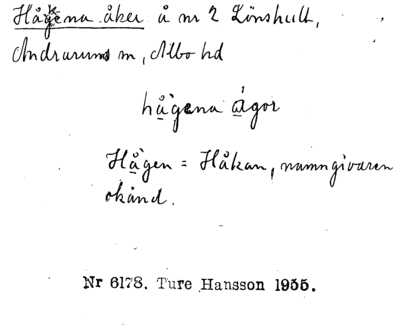 Håkena åker å nr 2 Lönshult,
Andrarums m, Albo hd
hå̀gena ágor
Hå̀gen = Håkan, namngivaren
okänd.
Nr 6178. Ture Hansson 1955.